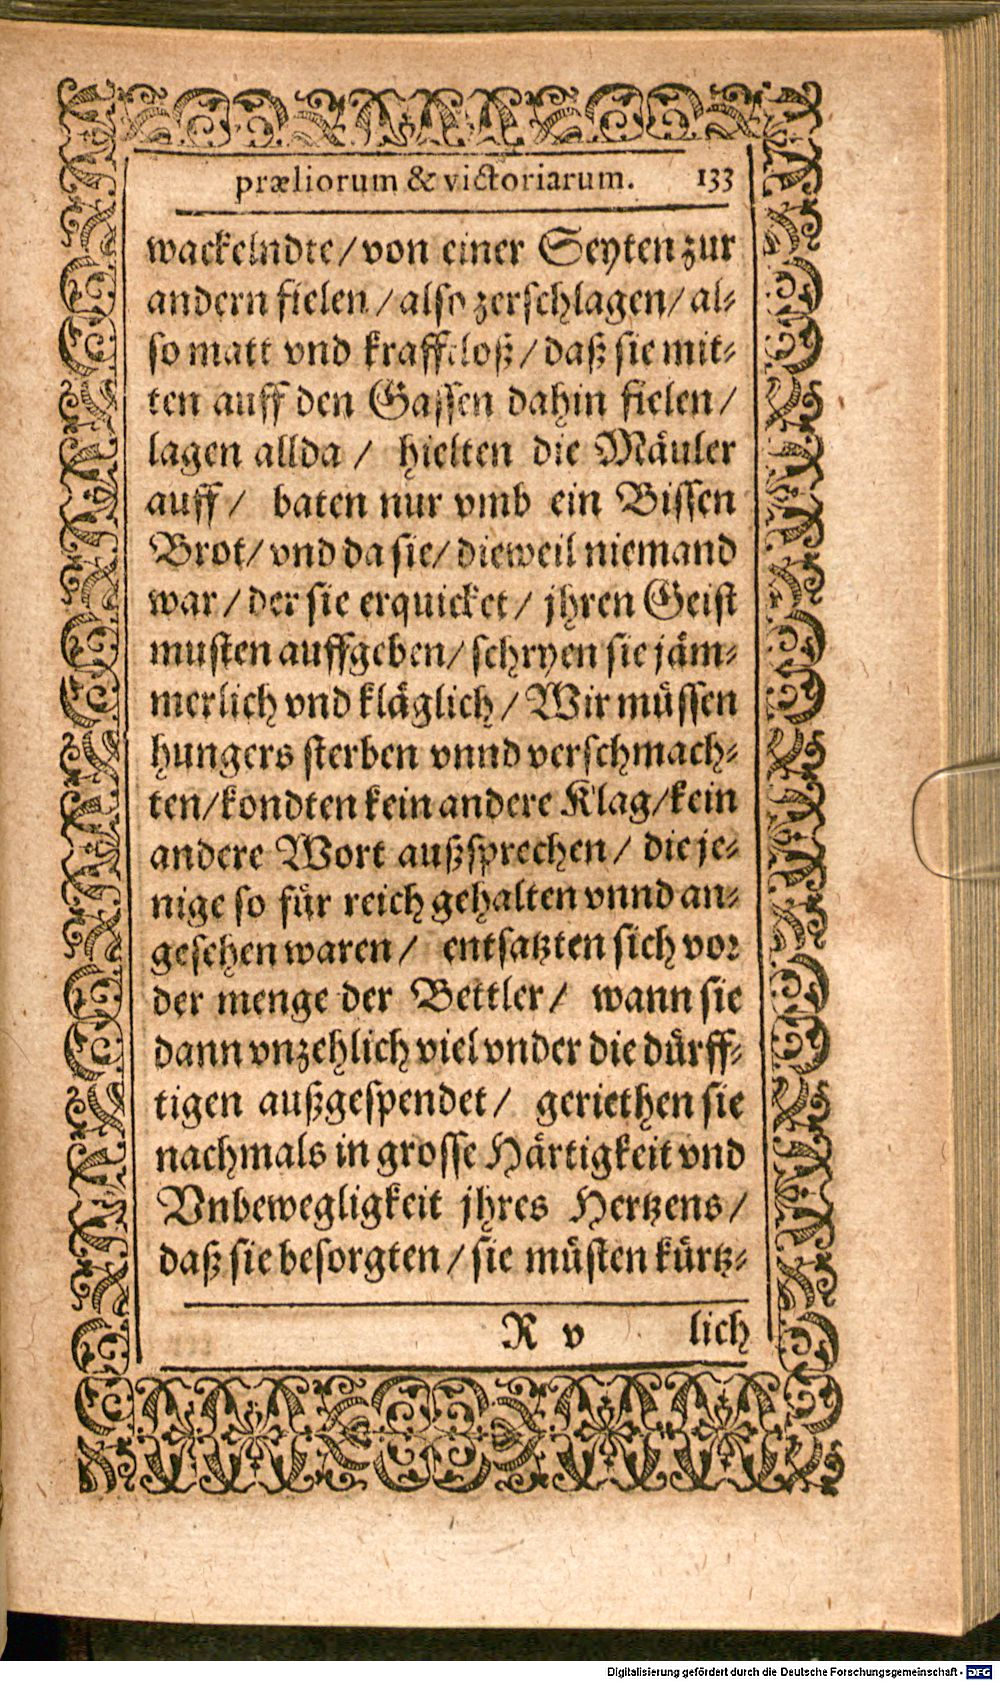 præliorum & victoriarum. 133
wackelndte/ von einer Seyten zur
andern fielen/ also zerschlagen/ al-
so matt vnd krafftloß/ daß sie mit-
ten auff den Gassen dahin fielen/
lagen allda/ hielten die Mäuler
auff/ baten nur vmb ein Bissen
Brot/ vnd da sie/ dieweil niemand
war/ der sie erquicket/ jhren Geist
musten auffgeben/ schryen sie jäm-
merlich vnd kläglich/ Wir müssen
hungers sterben vnnd verschmach-
ten/ kondten kein andere Klag/ kein
andere Wort außsprechen/ die je-
nige so für reich gehalten vnnd an-
gesehen waren/ entsatzten sich vor
der menge der Bettler/ wann sie
dann vnzehlich viel vnder die dürff-
tigen außgespendet/ geriethen sie
nachmals in grosse Härtigkeit vnd
Vnbewegligkeit jhres Hertzens/
daß sie besorgten/ sie müsten kürtz-
R v lich
Digitalisierung gefördert durch die Deutsche Forschungsgemeinschaft - DFG